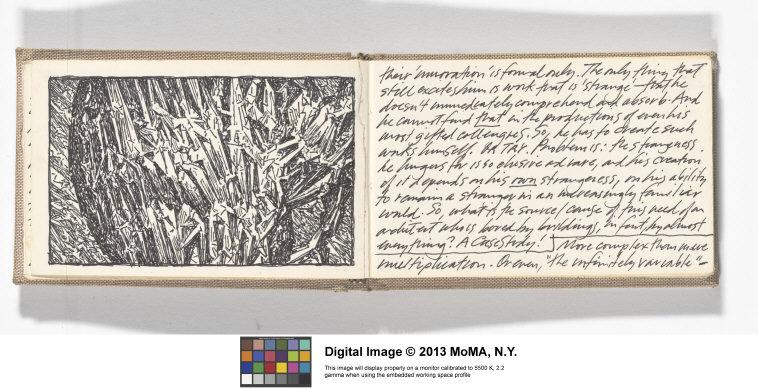 their 'innovation' is formal only. The only thing that
still excites him is work that is 'strange' – that he
doesn't immediately comprehend and absorb. And
he cannot find that in the productions of even his
most gifted colleagues. So, he has to create such
works himself. OR TRY. Problem is: the strangeness
he hungers for is so elusive and rare, and his creation
of it depends on his own strangeness, on his ability
to remain a stranger in an increasingly familiar
world. So, what is the source/cause of this need of an
architect who is bored by buildings, in fact, by almost
everything? A Case Study!] More complex than mere
multiplication. Or even, "the infinitely variable" –
Digital Image © 2013 MoMA, N.Y.
This image will display properly on a monitor calibrated to 5500 K, 2.2
gamma when using the embedded working space profile